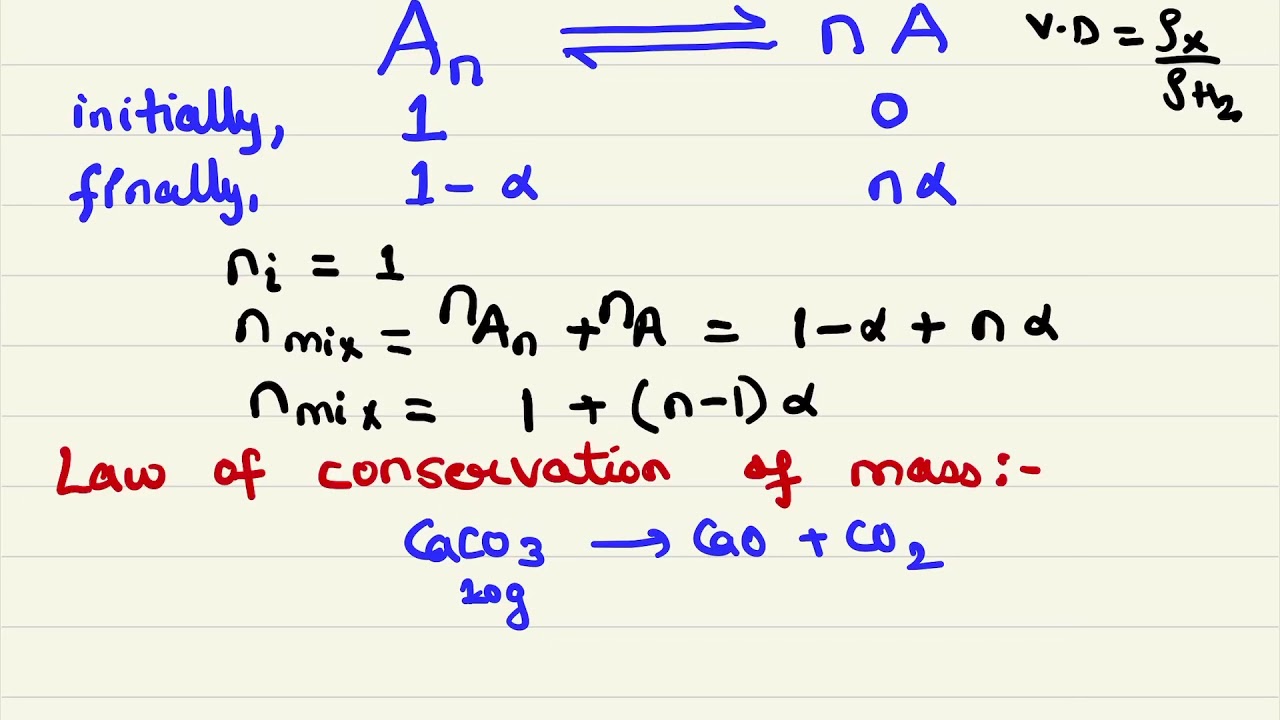 Aₙ ⇌ n A
V.D = ρₓ / ρH₂
initially, 1 0
finally, 1 - α nα
nᵢ = 1
n mix = nAₙ + nA = 1 - α + n α
n mix = 1 + (n-1) α
Law of conservation of mass:-
CaCO₃ → CaO + CO₂
10g